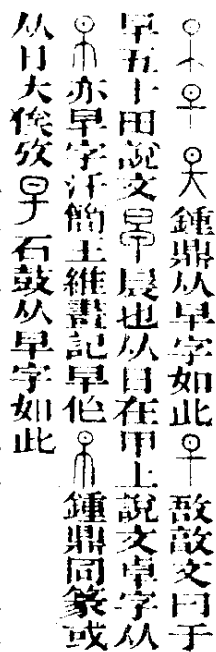 鍾鼎从早字如此敔敦文曰于
早五十田說文晨也从日在甲上說文卓字从
亦早字汗簡王維畫記早作鍾鼎同篆或
从日大俟攷石鼓从早字如此